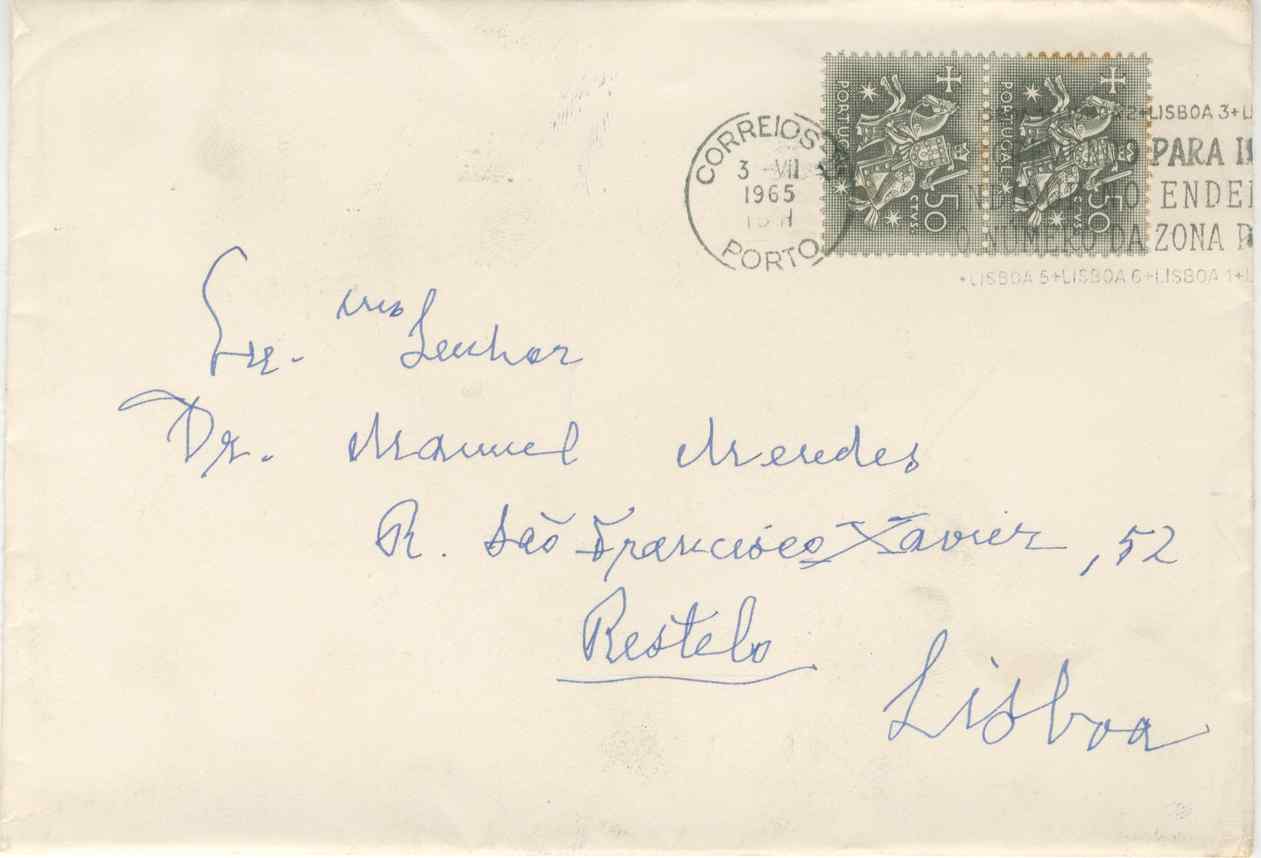 CORREIOS
3 - VII
1965
PORTO
PORTUGAL
50
CTVS.
PORTUGAL
50
CTVS.
2+LISBOA 3+L
PARA I
ENDE
O NUMERO DA ZONA P
+LISBOA 5+LISBOA 6+LISBOA 1+L
Ex.mo Senhor
Dr. Manuel Mendes
R. São Francisco Xavier, 52
Restelo
Lisboa